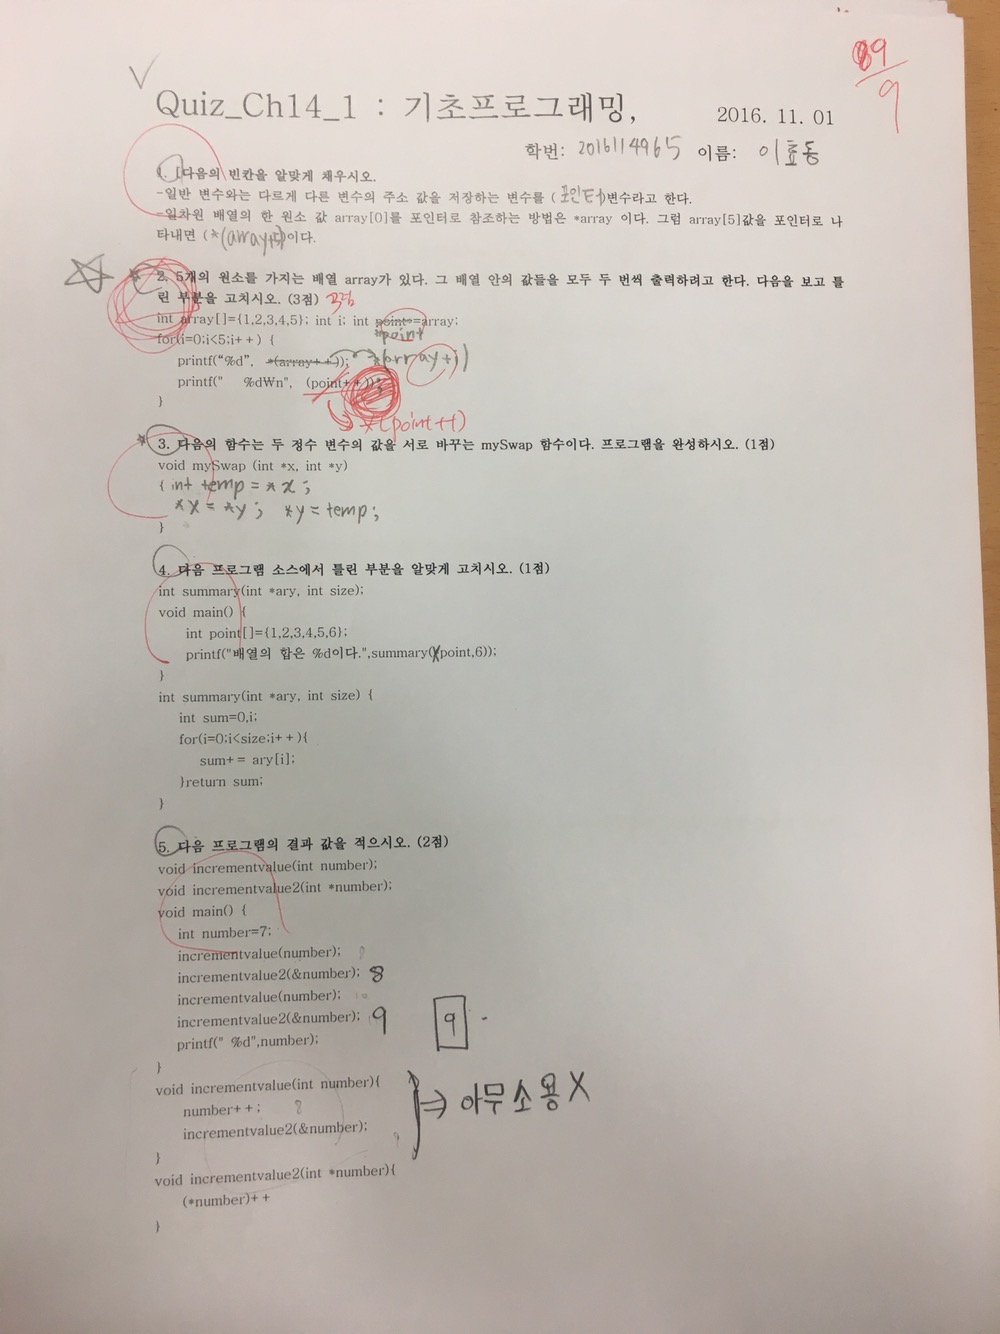 89
9
Quiz_Ch14_1 : 기초프로그래밍,
2016. 11. 01
학번: 2016114965 이름: 이효동
1. 다음의 빈칸을 알맞게 채우시오.
-일반 변수와는 다르게 다른 변수의 주소 값을 저장하는 변수를 (포인터)변수라고 한다.
-일차원 배열의 한 원소 값 array[0]를 포인터로 참조하는 방법은 *array 이다. 그럼 array[5]값을 포인터로 나
타내면 (*(array+5))이다.
2. 5개의 원소를 가지는 배열 array가 있다. 그 배열 안의 값들을 모두 두 번씩 출력하려고 한다. 다음을 보고 틀
린 부분을 고치시오. (3점)
int array[]={1,2,3,4,5}; int i; int point =array;
*point
for(i=0;i<5;i++) {
printf("%d", *(array++)); *(array+i)
printf(" %d\n", (point++));
}
*(point++)
3. 다음의 함수는 두 정수 변수의 값을 서로 바꾸는 mySwap 함수이다. 프로그램을 완성하시오. (1점)
void mySwap (int *x, int *y)
{ int temp = *x ;
*x = *y ; *y = temp ;
}
4. 다음 프로그램 소스에서 틀린 부분을 알맞게 고치시오. (1점)
int summary(int *ary, int size);
void main() {
int point[]={1,2,3,4,5,6};
printf("배열의 합은 %d이다.",summary(point,6));
}
int summary(int *ary, int size) {
int sum=0,i;
for(i=0;i<size;i++){
sum+= ary[i];
}return sum;
}
5. 다음 프로그램의 결과 값을 적으시오. (2점)
void incrementvalue(int number);
void incrementvalue2(int *number);
void main() {
int number=7;
incrementvalue(number); 8
incrementvalue2(&number); 8
incrementvalue(number); 10
incrementvalue2(&number); 9 9
printf(" %d",number);
}
void incrementvalue(int number){
number++; 8
incrementvalue2(&number); 9
⇒ 아무소용X
}
void incrementvalue2(int *number){
(*number)++
}